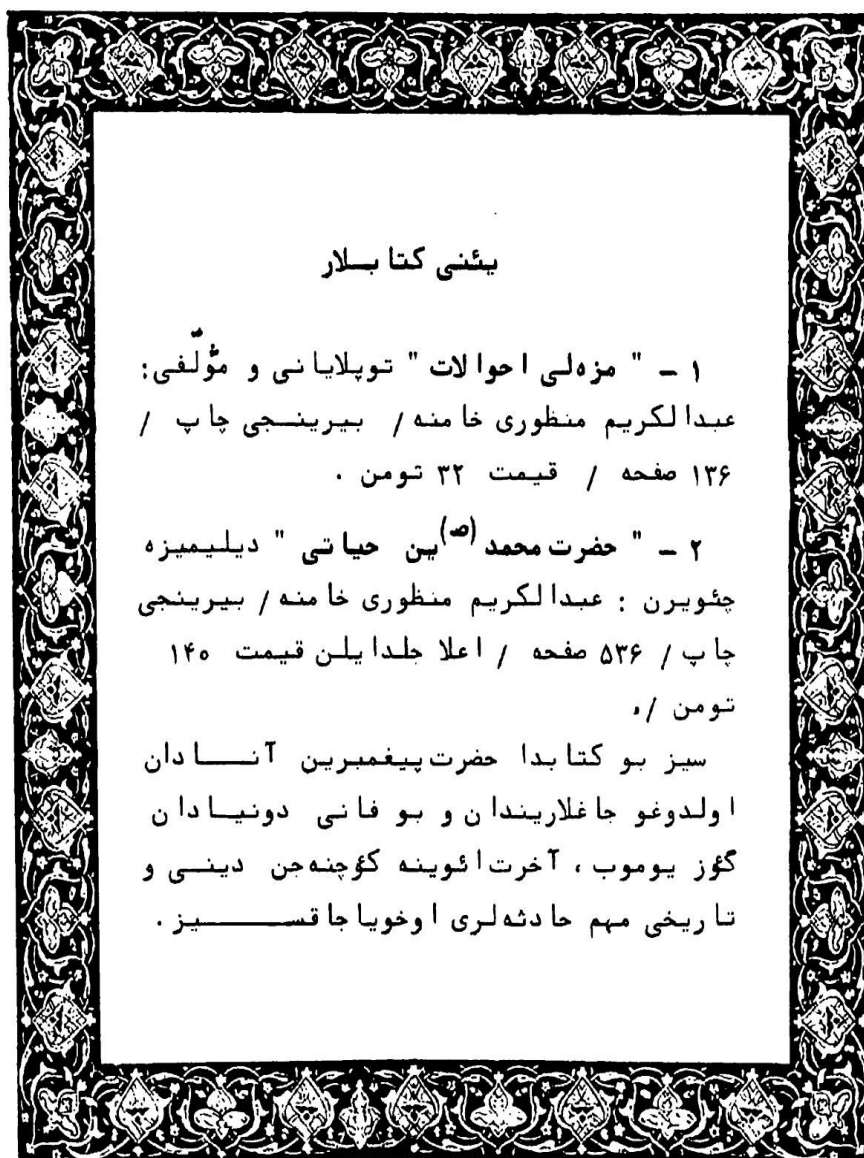 یئنی کتابلار
۱ - " مزه‌لی احوالات " توپلایانی و مؤلّفی:
عبدالکریم منظوری خامنه / بیرینجی چاپ /
۱۳۶ صفحه / قیمت ۳۲ تومن .
۲ - " حضرت محمد (ص) ین حیاتی " دیلیمیزه
چئویرن : عبدالکریم منظوری خامنه / بیرینجی
چاپ / ۵۳۶ صفحه / اعلا جلدایلن قیمت ۱۴۰
تومن /.
سیز بو کتابدا حضرت پیغمبرین آنادان
اولدوغو جاغلاریندان و بو فانی دونیادان
گؤز یوموب ، آخرت ائوینه کؤچنه‌جن دینی و
تاریخی مهم حادثه‌لری اوخویاجاقسیز .